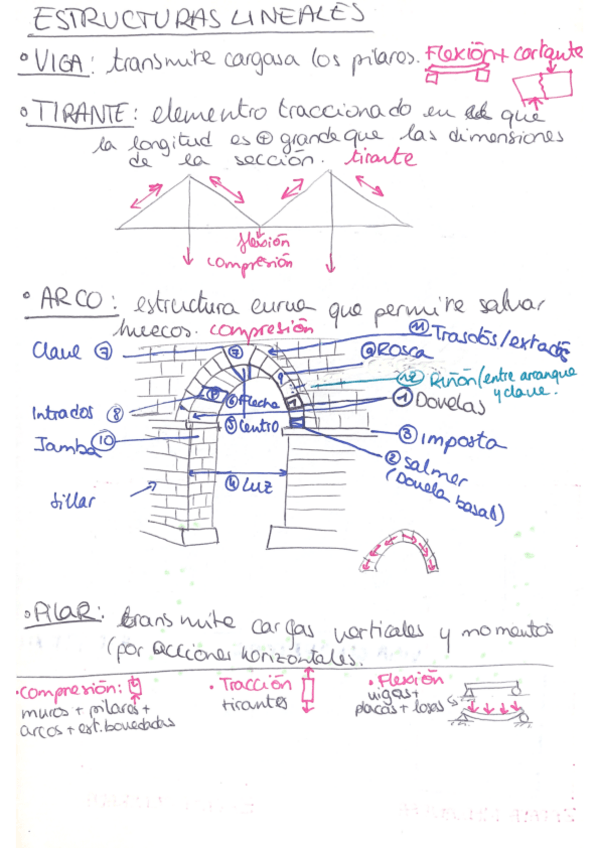 ESTRUCTURAS LINEALES
• VIGA: transmite cargas a los pilares. Flexión + cortante
• TIRANTE: elemento traccionado en el que
la longitud es ⊕ grande que las dimensiones
de la sección. tirante
flexión
compresión
• ARCO: estructura curva que permite salvar
huecos. compresión
⑪ Trasdós/extradós
Clave ⑦
⑦
⑨ Rosca
9
⑫ Riñón (entre arranque
y clave.
⑧
⑥ Flecha
1
① Dovelas
Intrados ⑧
⑤ Centro
③ imposta
Jamba ⑩
② Salmer
(Dovela basal)
④ LUZ
sillar
• PILAR: transmite cargas verticales y momentos
(por acciones horizontales.
• Compresión:
muros + pilares +
arcos + est. bovedadas
• Tracción
tirantes
• Flexión
vigas +
placas + losas